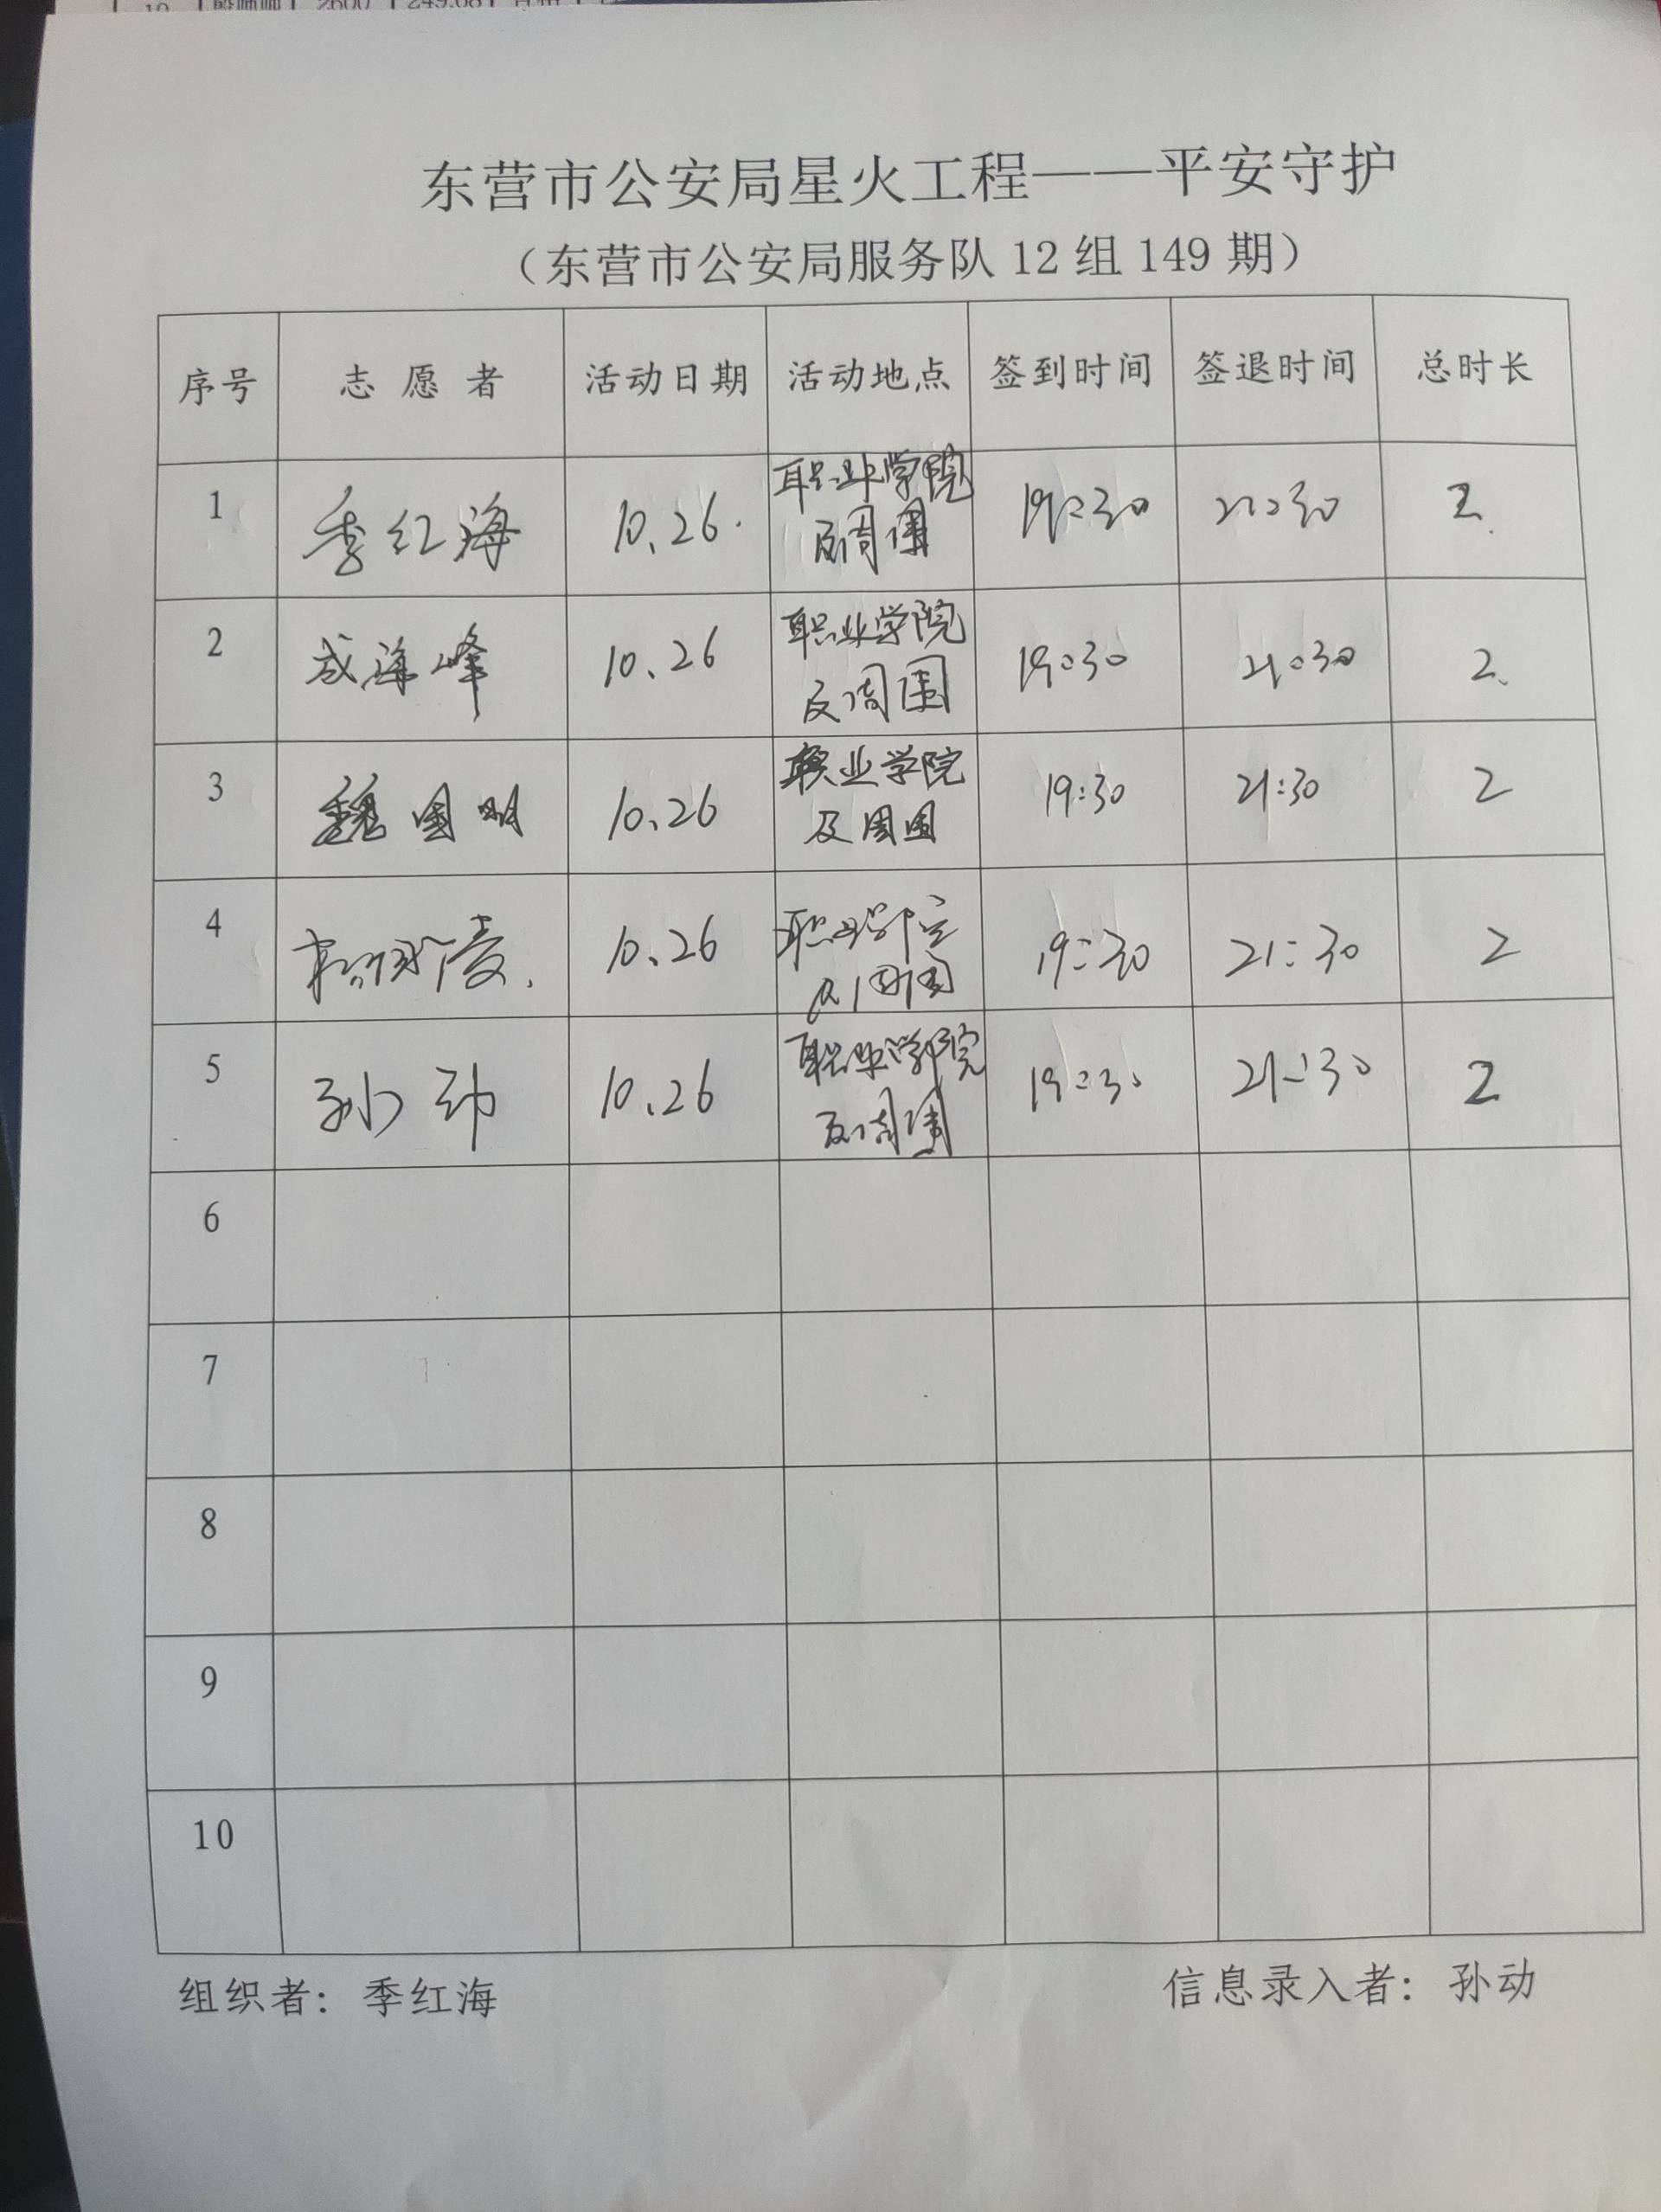 东营市公安局星火工程——平安守护
（东营市公安局服务队12组149期）
序号 志愿者 活动日期 活动地点 签到时间 签退时间 总时长
1 季红海 10.26. 职业学院及周围 19:30 21:30 2
2 成海峰 10.26 职业学院及周围 19:30 21:30 2
3 魏国明 10.26 职业学院及周围 19:30 21:30 2
4 10.26 职业学院及周围 19:30 21:30 2
5 孙动 10.26 职业学院及周围 19:30 21:30 2
6
7
8
9
10
组织者：季红海 信息录入者：孙动